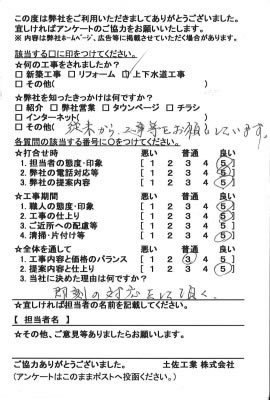 この度は弊社をご利用いただきましてありがとうございました。
宜しければアンケートのご協力をお願いいたします。
※ 内容は弊社ホームページ、広告等に掲載させていただく場合があります。
該当する□に印をつけてください。
★何の工事をされましたか？
□ 新築工事 □ リフォーム ☑ 上下水道工事
□ その他( )
★弊社を知ったきっかけは何ですか？
□ 紹介 □ 弊社営業 □ タウンページ □ チラシ
□ インターネット( )
□ その他( 従来から、工事等をお願いしています。
各質問の該当する番号に○をつけてください。
★打合せ時 悪い 普通 良い
1. 担当者の態度・印象 [ 1 2 3 4 ⑤ ]
2. 弊社の電話対応等 [ 1 2 3 4 ⑤ ]
3. 弊社の提案内容 [ 1 2 3 4 ⑤ ]
★工事期間 悪い 普通 良い
1. 職人の態度・印象 [ 1 2 3 4 ⑤ ]
2. 工事の仕上り [ 1 2 3 4 ⑤ ]
3. ご近所への配慮等 [ 1 2 3 4 ⑤ ]
4. 清掃・片付け等 [ 1 2 3 4 ⑤ ]
★全体を通して 悪い 普通 良い
1. 工事内容と価格のバランス [ 1 2 ③ 4 5 ]
2. 提案内容と仕上り [ 1 2 3 4 ⑤ ]
3. 当社に決めた理由は何ですか？
即刻の対応をして頂く。
★宜しければ担当者の名前を記載してください。
【 担当者名 】
★その他、ご意見等ありましたらお願いします。
ご協力ありがとうございました。 土佐工業 株式会社
(アンケートはこのままポストへ投函ください。)